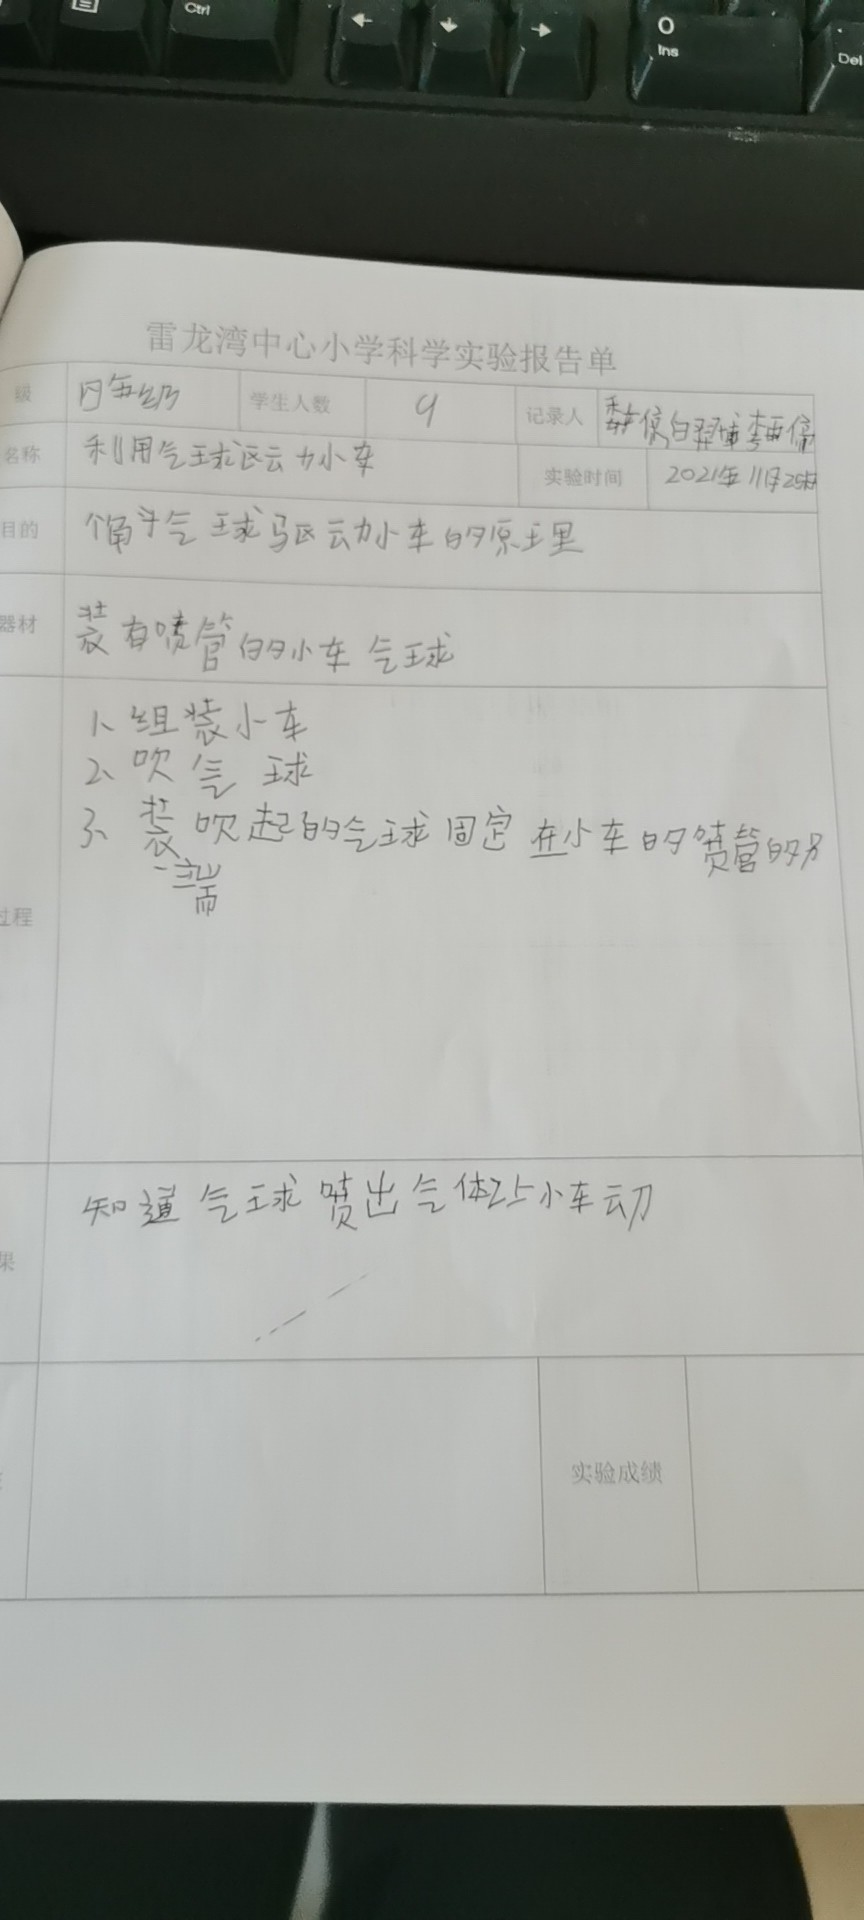 Ctrl
0
Ins
Del
雷龙湾中心小学科学实验报告单
级 四年级 学生人数 9 记录人
名称 利用气球驱动小车 实验时间 2021年11月25日
目的 解气球驱动小车的原理
器材 装有喷管的小车 气球
1、组装小车
2、吹气球
3、装吹起的气球固定在小车的喷管的另
一端
过程
知道气球喷出气体让小车动
果
实验成绩